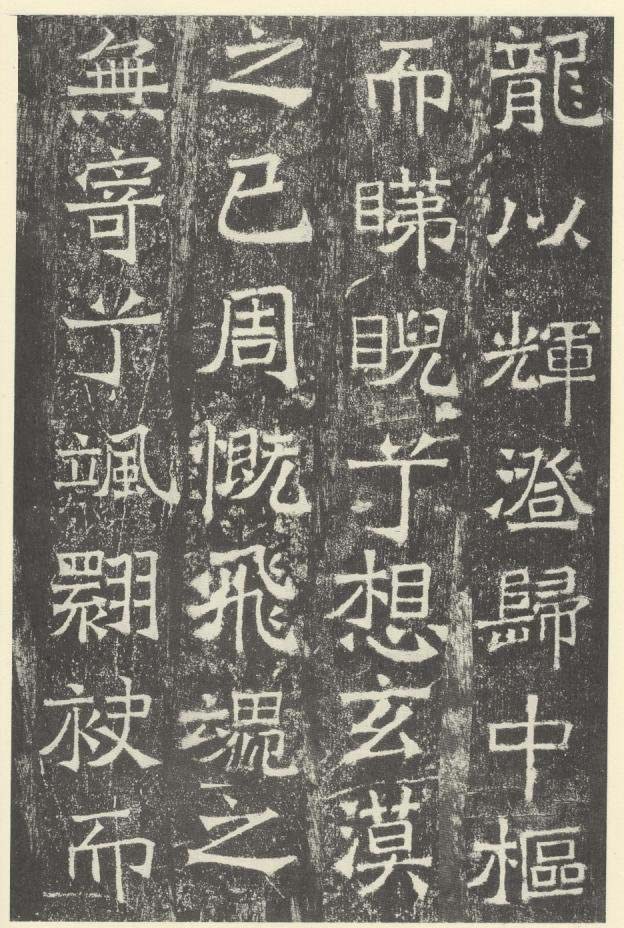 龍以輝澄歸中樞
而睇睨兮想玄漠
之已周慨飛之
無寄兮颯翾而